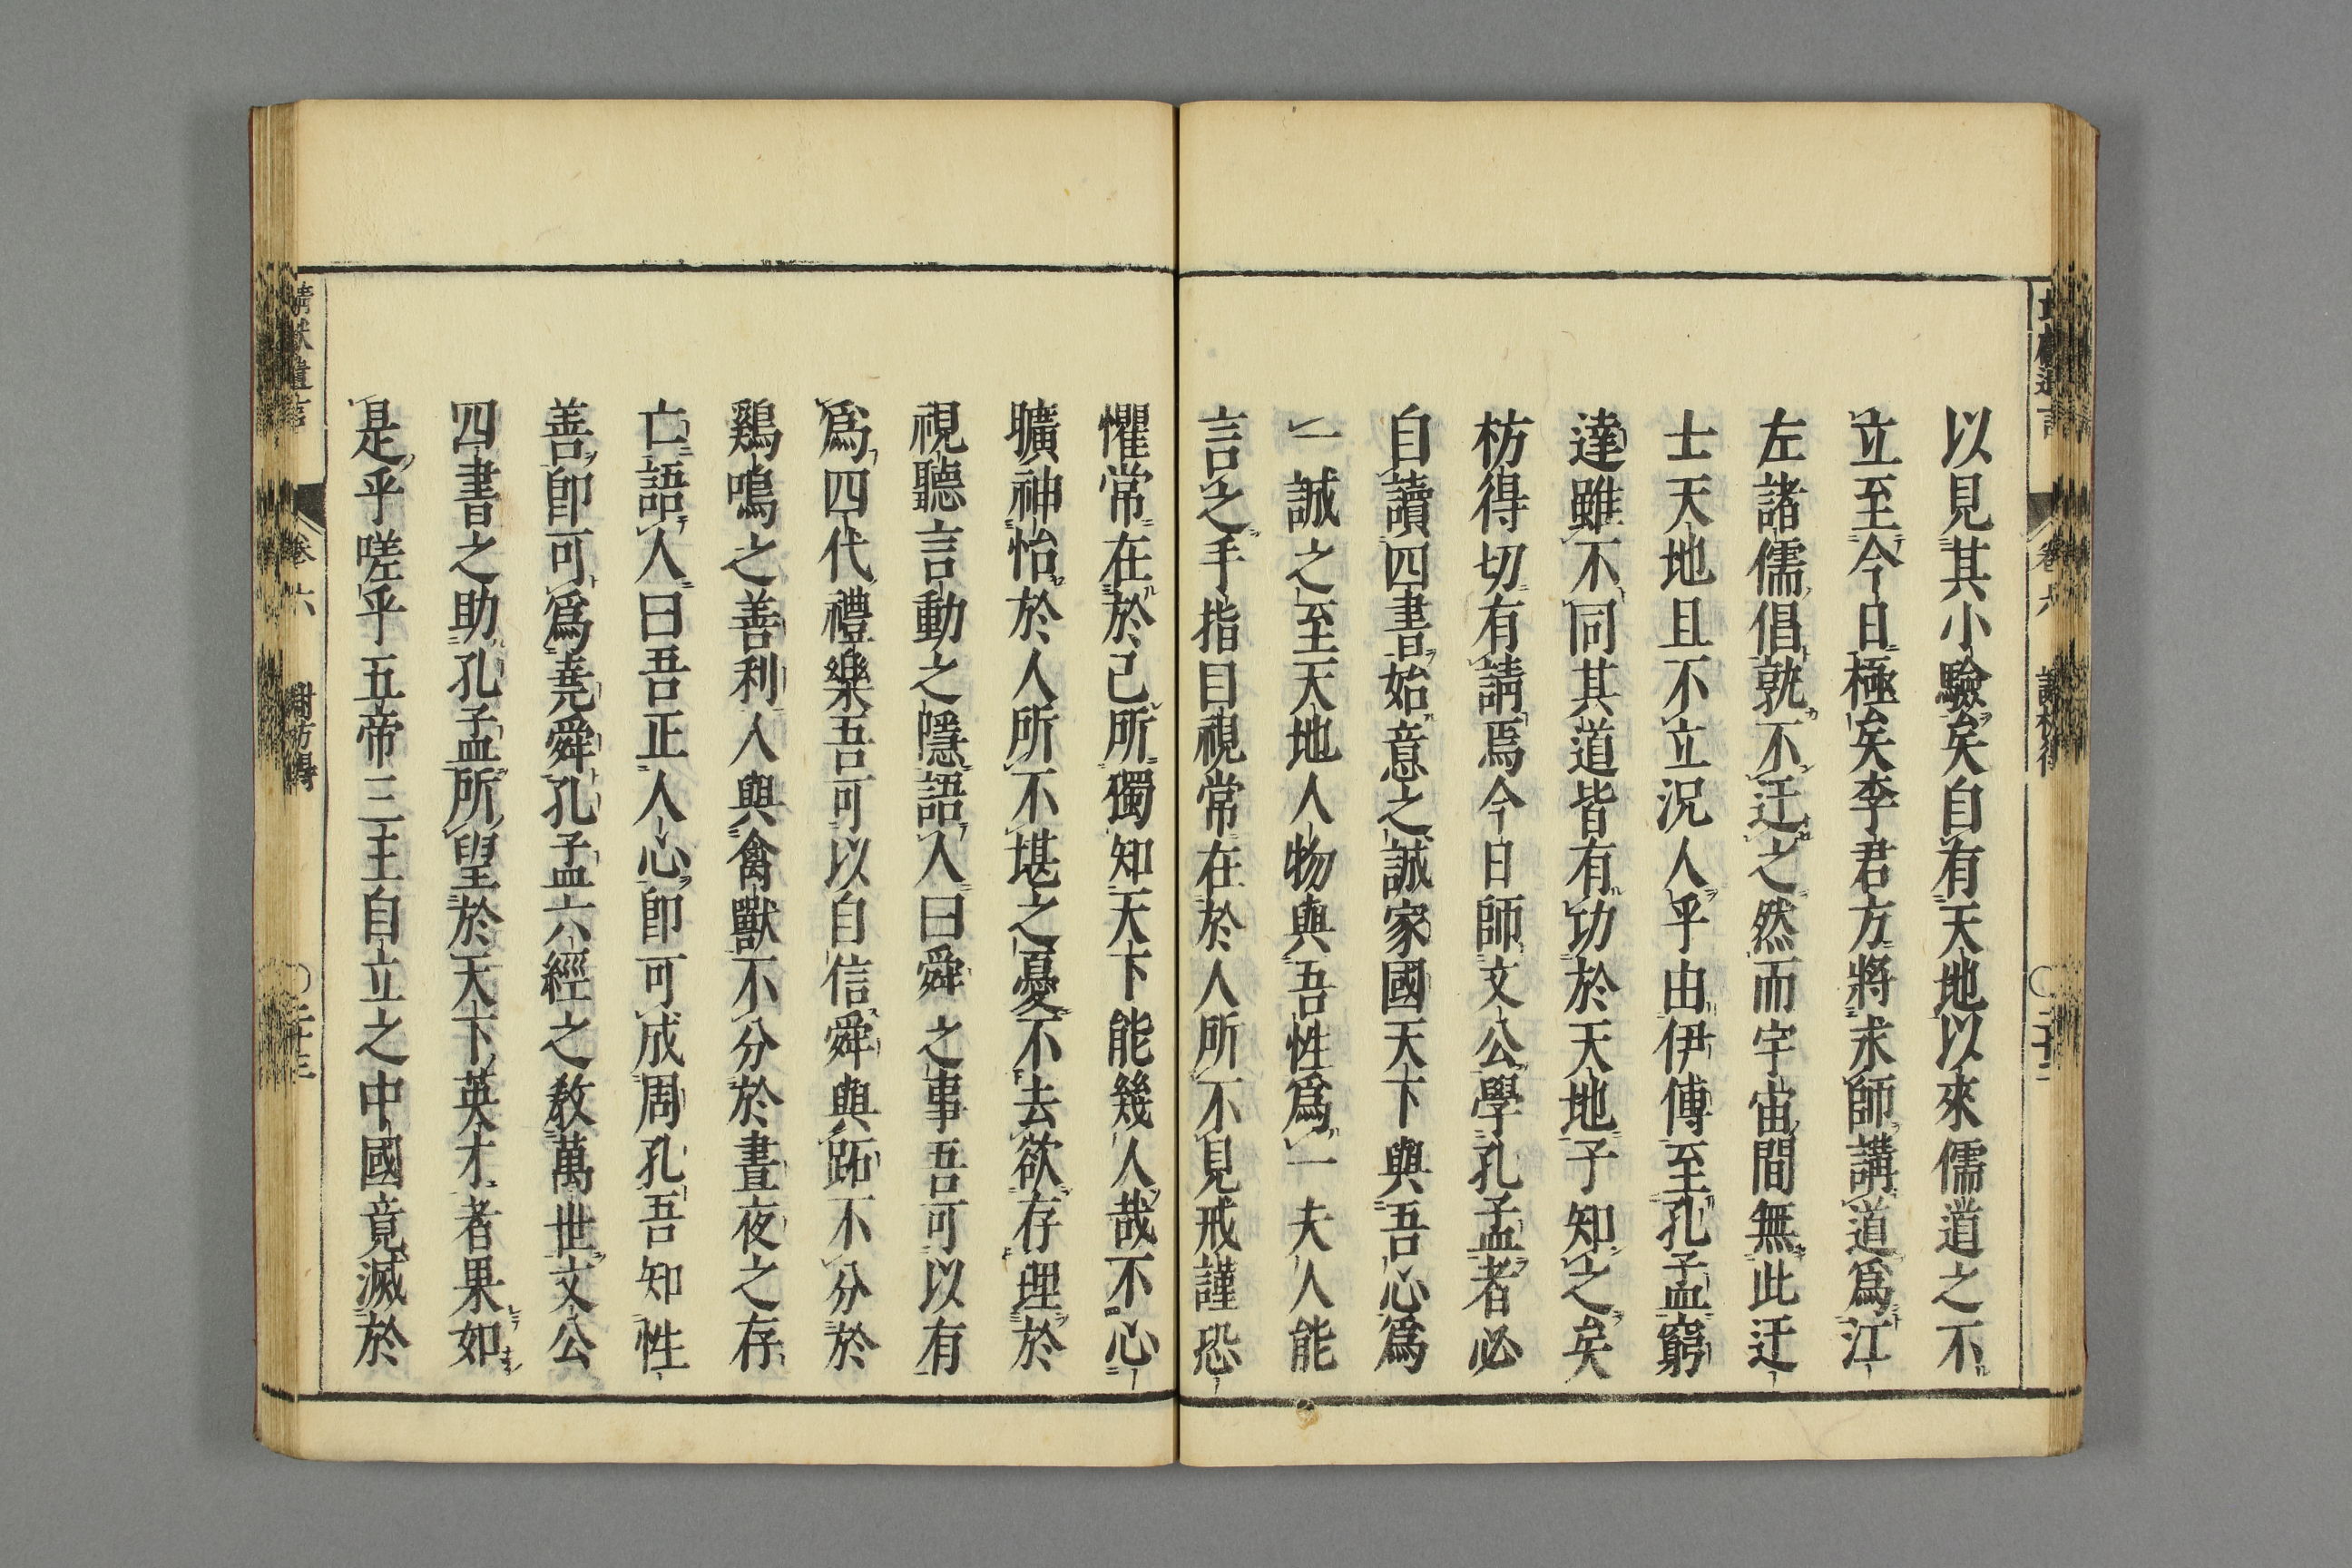 以見其小驗矣自有天地以來儒道之不
立至今日極矣李君方將求師講道爲江
左諸儒倡就不迂之然而宇宙間無此迂
士天地且不立況人乎由伊傅至孔孟窮
達雖不同其道皆有功於天地予知之矣
枋得切有請焉今日師文公學孔孟者必
自讀四書始意之誠家國天下與吾心爲
一誠之至天地人物與吾性爲一夫人能
言之手指目視常在於人所不見戒謹恐
懼常在於己所獨知天下能幾人哉不心
曠神怡於人所不堪之憂不去欲存理於
視聽言動之隱語人曰舜之事吾可以有
爲四代禮樂吾可以自信舜與跖不分於
鷄鳴之善利人與禽獸不分於晝夜之存
亡語人曰吾正人心卽可成周孔吾知性
善卽可爲堯舜孔孟六經之敎萬世文公
四書之助孔孟所望於天下英才者果如
是乎嗟乎五帝三王自立之中國竟滅於
靖獻遺言
卷六
謝枋得
〇二十三